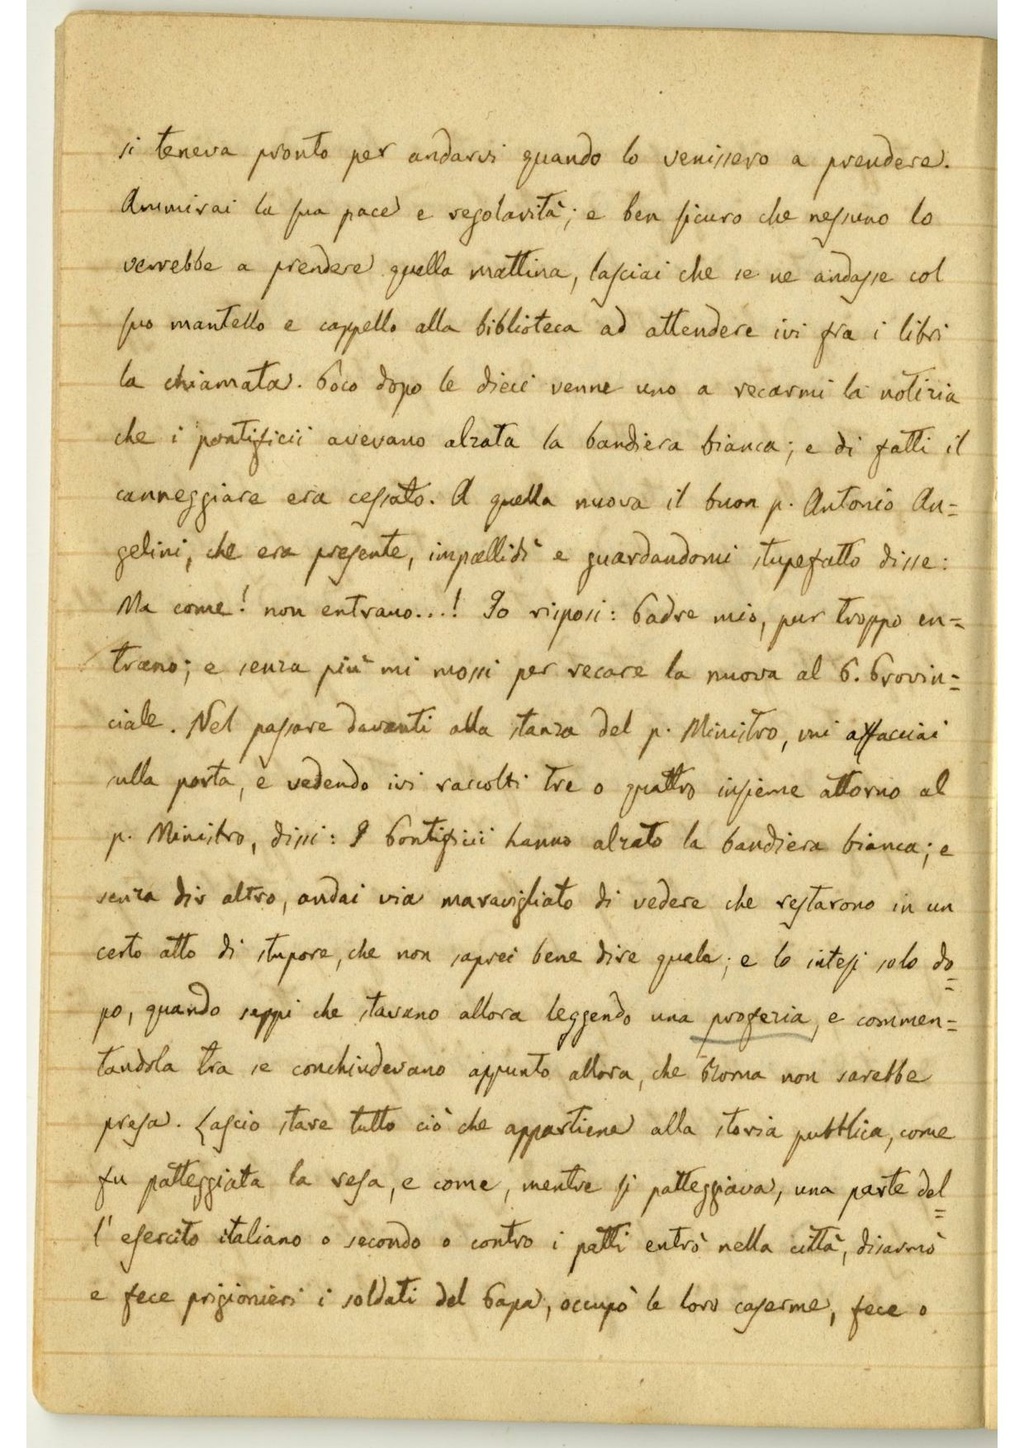 si teneva pronto per andarvi quando lo venissero a prendere.
Ammirai la sua pace e regolarità; e ben sicuro che nessuno lo
verrebbe a prendere quella mattina, lasciai che se ne andasse col
suo mantello e cappello alla biblioteca ad attendere ivi fra i libri
la chiamata. Poco dopo le dieci venne uno a recarmi la notizia
che i pontificii avevano alzata la bandiera bianca; e di fatti il
canneggiare era cessato. A quella nuova il buon p. Antonio An=
gelini, che era presente, impallidì e guardandomi stupefatto disse:
Ma come! non entrano...! Io risposi: Padre mio, pur troppo en=
trano; e senza più mi mossi per recare la nuova al P. Provin=
ciale. Nel passare davanti alla stanza del p. Ministro, mi affacciai
sulla porta, e vedendo ivi raccolti tre o quattro insieme attorno al
p. Ministro, dissi: I Pontificii hanno alzato la bandiera bianca; e
senza dir altro, andai via maravigliato di vedere che restarono in un
certo atto di stupore, che non saprei bene dire quale; e lo intesi solo do=
po, quando seppi che stavano allora leggendo una profezia, e commen=
tandola tra se conchiudevano appunto allora, che Roma non sarebbe
presa. Lascio stare tutto ciò che appartiene alla storia pubblica, come
fu patteggiata la resa, e come, mentre si patteggiava, una parte del=
l'esercito italiano o secondo o contro i patti entrò nella città, disarmò
e fece prigionieri i soldati del Papa, occupò le loro caserme, fece o